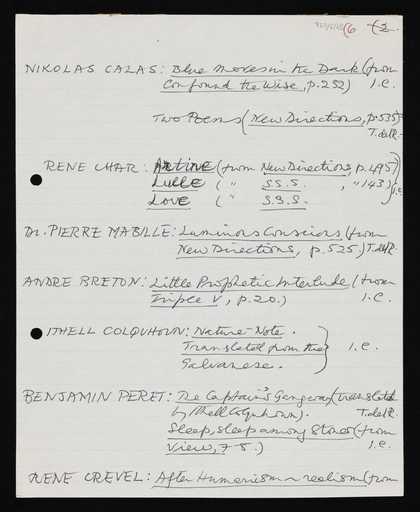 (2.
NIKOLAS CALAS: Blue moves in the Dark (from
Confound the Wise, p.252) I.C.
Two Poems (New Directions, p.535)
T.delR.
RENE CHAR: Artine (from New Directions, p.495)
Lulle ( " S.S.S. , " 143)
Love ( " S.S.S. I.C.
Dr. PIERRE MABILLE: Luminous Conscious (from
New Directions, p.525) T.delR.
ANDRE BRETON: Little Prophetic Interlude (from
Triple V, p.20.) I.C.
ITHELL COLQUHOUN: Nature-Note.
Translated from the I.C.
Galvanese.
BENJAMIN PERET: The Captain's Gangway (translated
by Ithell Colquhoun). T.delR.
Sleep, sleep among Stones (from
View, 7-8.) I.C.
RENE CREVEL: After Humanism realism (from